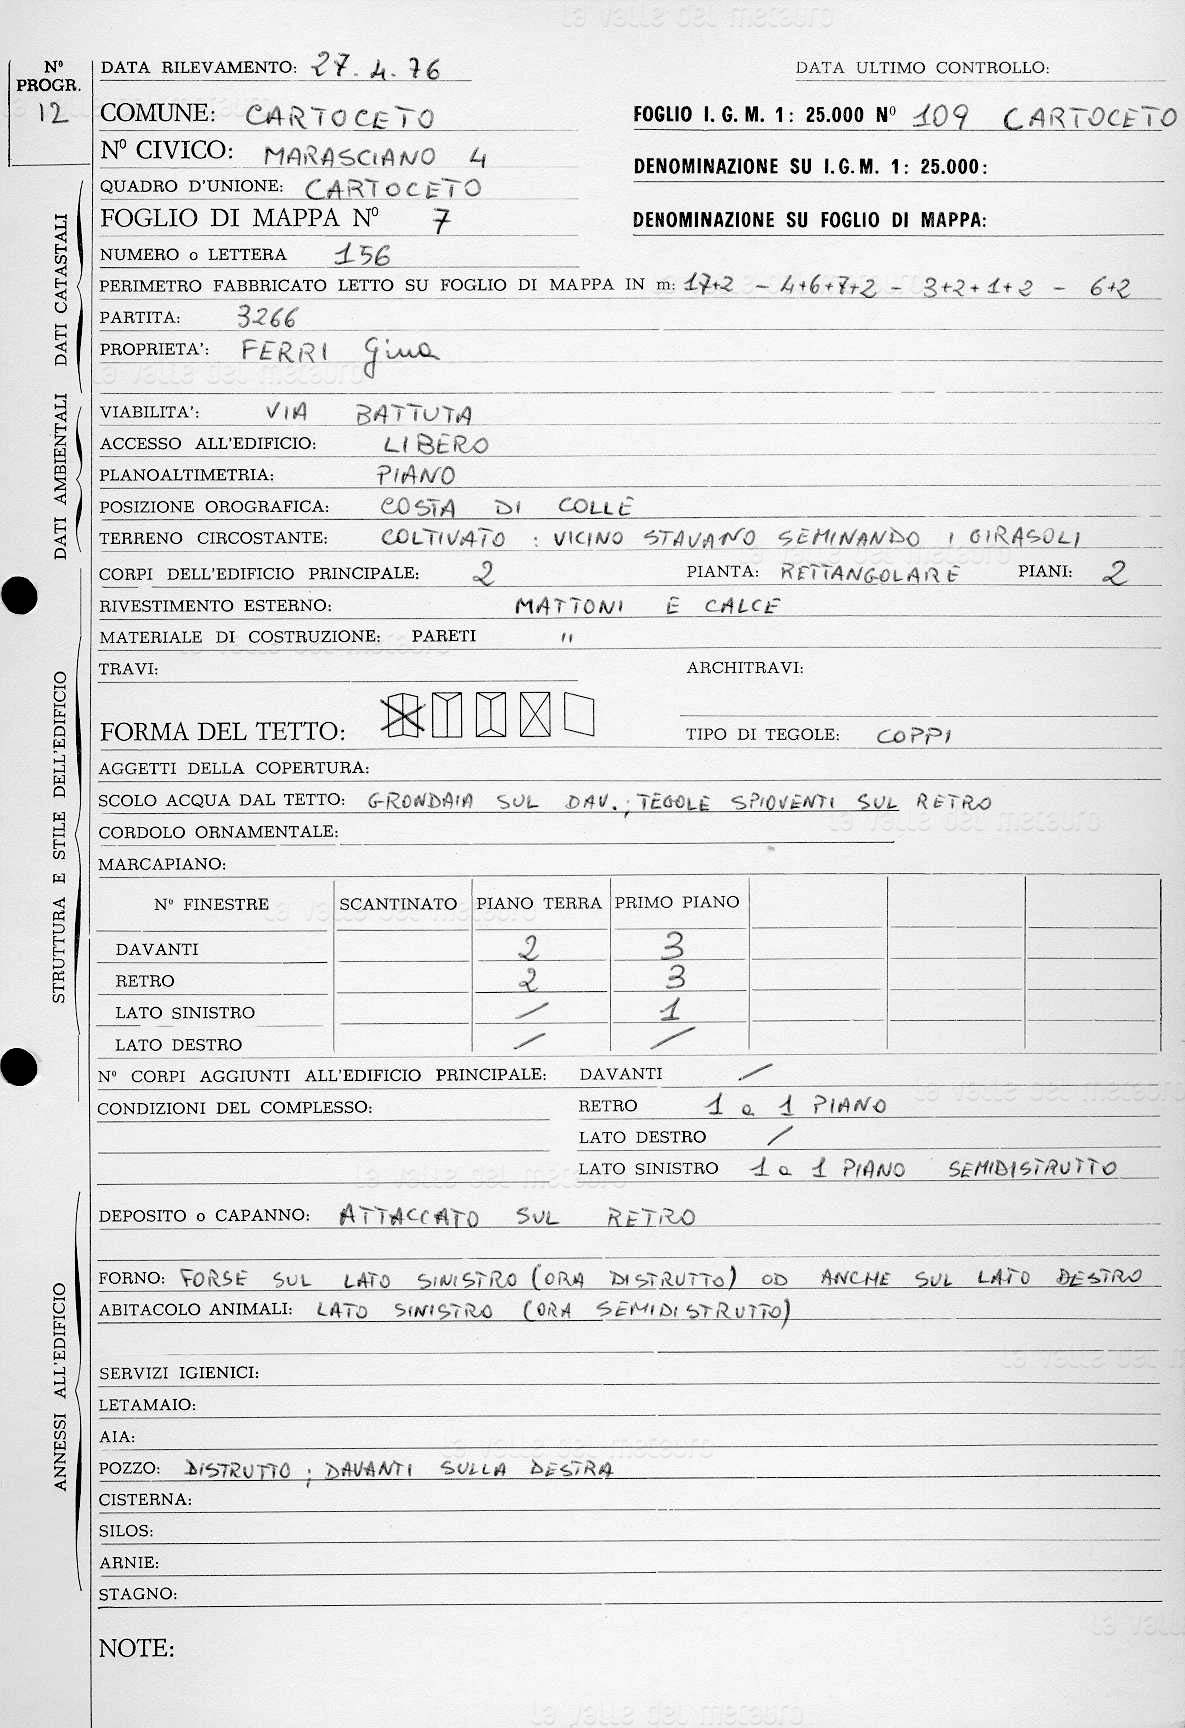 la valle del metauro
Nº PROGR. 12
DATA RILEVAMENTO: 27.4.76 DATA ULTIMO CONTROLLO:
COMUNE: CARTOCETO FOGLIO I.G.M. 1: 25.000 Nº 109 CARTOCETO
Nº CIVICO: MARASCIANO 4 DENOMINAZIONE SU I.G.M. 1: 25.000:
QUADRO D'UNIONE: CARTOCETO
FOGLIO DI MAPPA Nº 7 DENOMINAZIONE SU FOGLIO DI MAPPA:
NUMERO o LETTERA 156
PERIMETRO FABBRICATO LETTO SU FOGLIO DI MAPPA IN m: 17+2 - 4+6+7+2 - 3+2+1+2 - 6+2
PARTITA: 3266
PROPRIETA': FERRI Gina
la valle del metauro
DATI CATASTALI
VIABILITA': VIA BATTUTA
ACCESSO ALL'EDIFICIO: LIBERO
PLANOALTIMETRIA: PIANO
POSIZIONE OROGRAFICA: COSTA DI COLLE
TERRENO CIRCOSTANTE: COLTIVATO: VICINO STAVANO SEMINANDO I GIRASOLI
DATI AMBIENTALI
CORPI DELL'EDIFICIO PRINCIPALE: 2 PIANTA: RETTANGOLARE PIANI: 2
RIVESTIMENTO ESTERNO: MATTONI E CALCE
MATERIALE DI COSTRUZIONE: PARETI "
TRAVI: ARCHITRAVI:
FORMA DEL TETTO: TIPO DI TEGOLE: COPPI
AGGETTI DELLA COPERTURA:
SCOLO ACQUA DAL TETTO: GRONDAIA SUL DAV.; TEGOLE SPIOVENTI SUL RETRO
la valle del metauro
CORDOLO ORNAMENTALE:
MARCAPIANO:
Nº FINESTRE SCANTINATO PIANO TERRA PRIMO PIANO
DAVANTI 2 3
RETRO 2 3
LATO SINISTRO / 1
LATO DESTRO / /
STRUTTURA E STILE DELL'EDIFICIO
Nº CORPI AGGIUNTI ALL'EDIFICIO PRINCIPALE: DAVANTI /
CONDIZIONI DEL COMPLESSO: RETRO 1 a 1 PIANO
LATO DESTRO /
LATO SINISTRO 1 a 1 PIANO SEMIDISTRUTTO
DEPOSITO o CAPANNO: ATTACCATO SUL RETRO
FORNO: FORSE SUL LATO SINISTRO (ORA DISTRUTTO) OD ANCHE SUL LATO DESTRO
ABITACOLO ANIMALI: LATO SINISTRO (ORA SEMIDISTRUTTO)
SERVIZI IGIENICI:
LETAMAIO:
AIA:
la valle del metauro
POZZO: DISTRUTTO; DAVANTI SULLA DESTRA
CISTERNA:
SILOS:
ARNIE:
STAGNO:
ANNESSI ALL'EDIFICIO
NOTE:
la valle del metauro